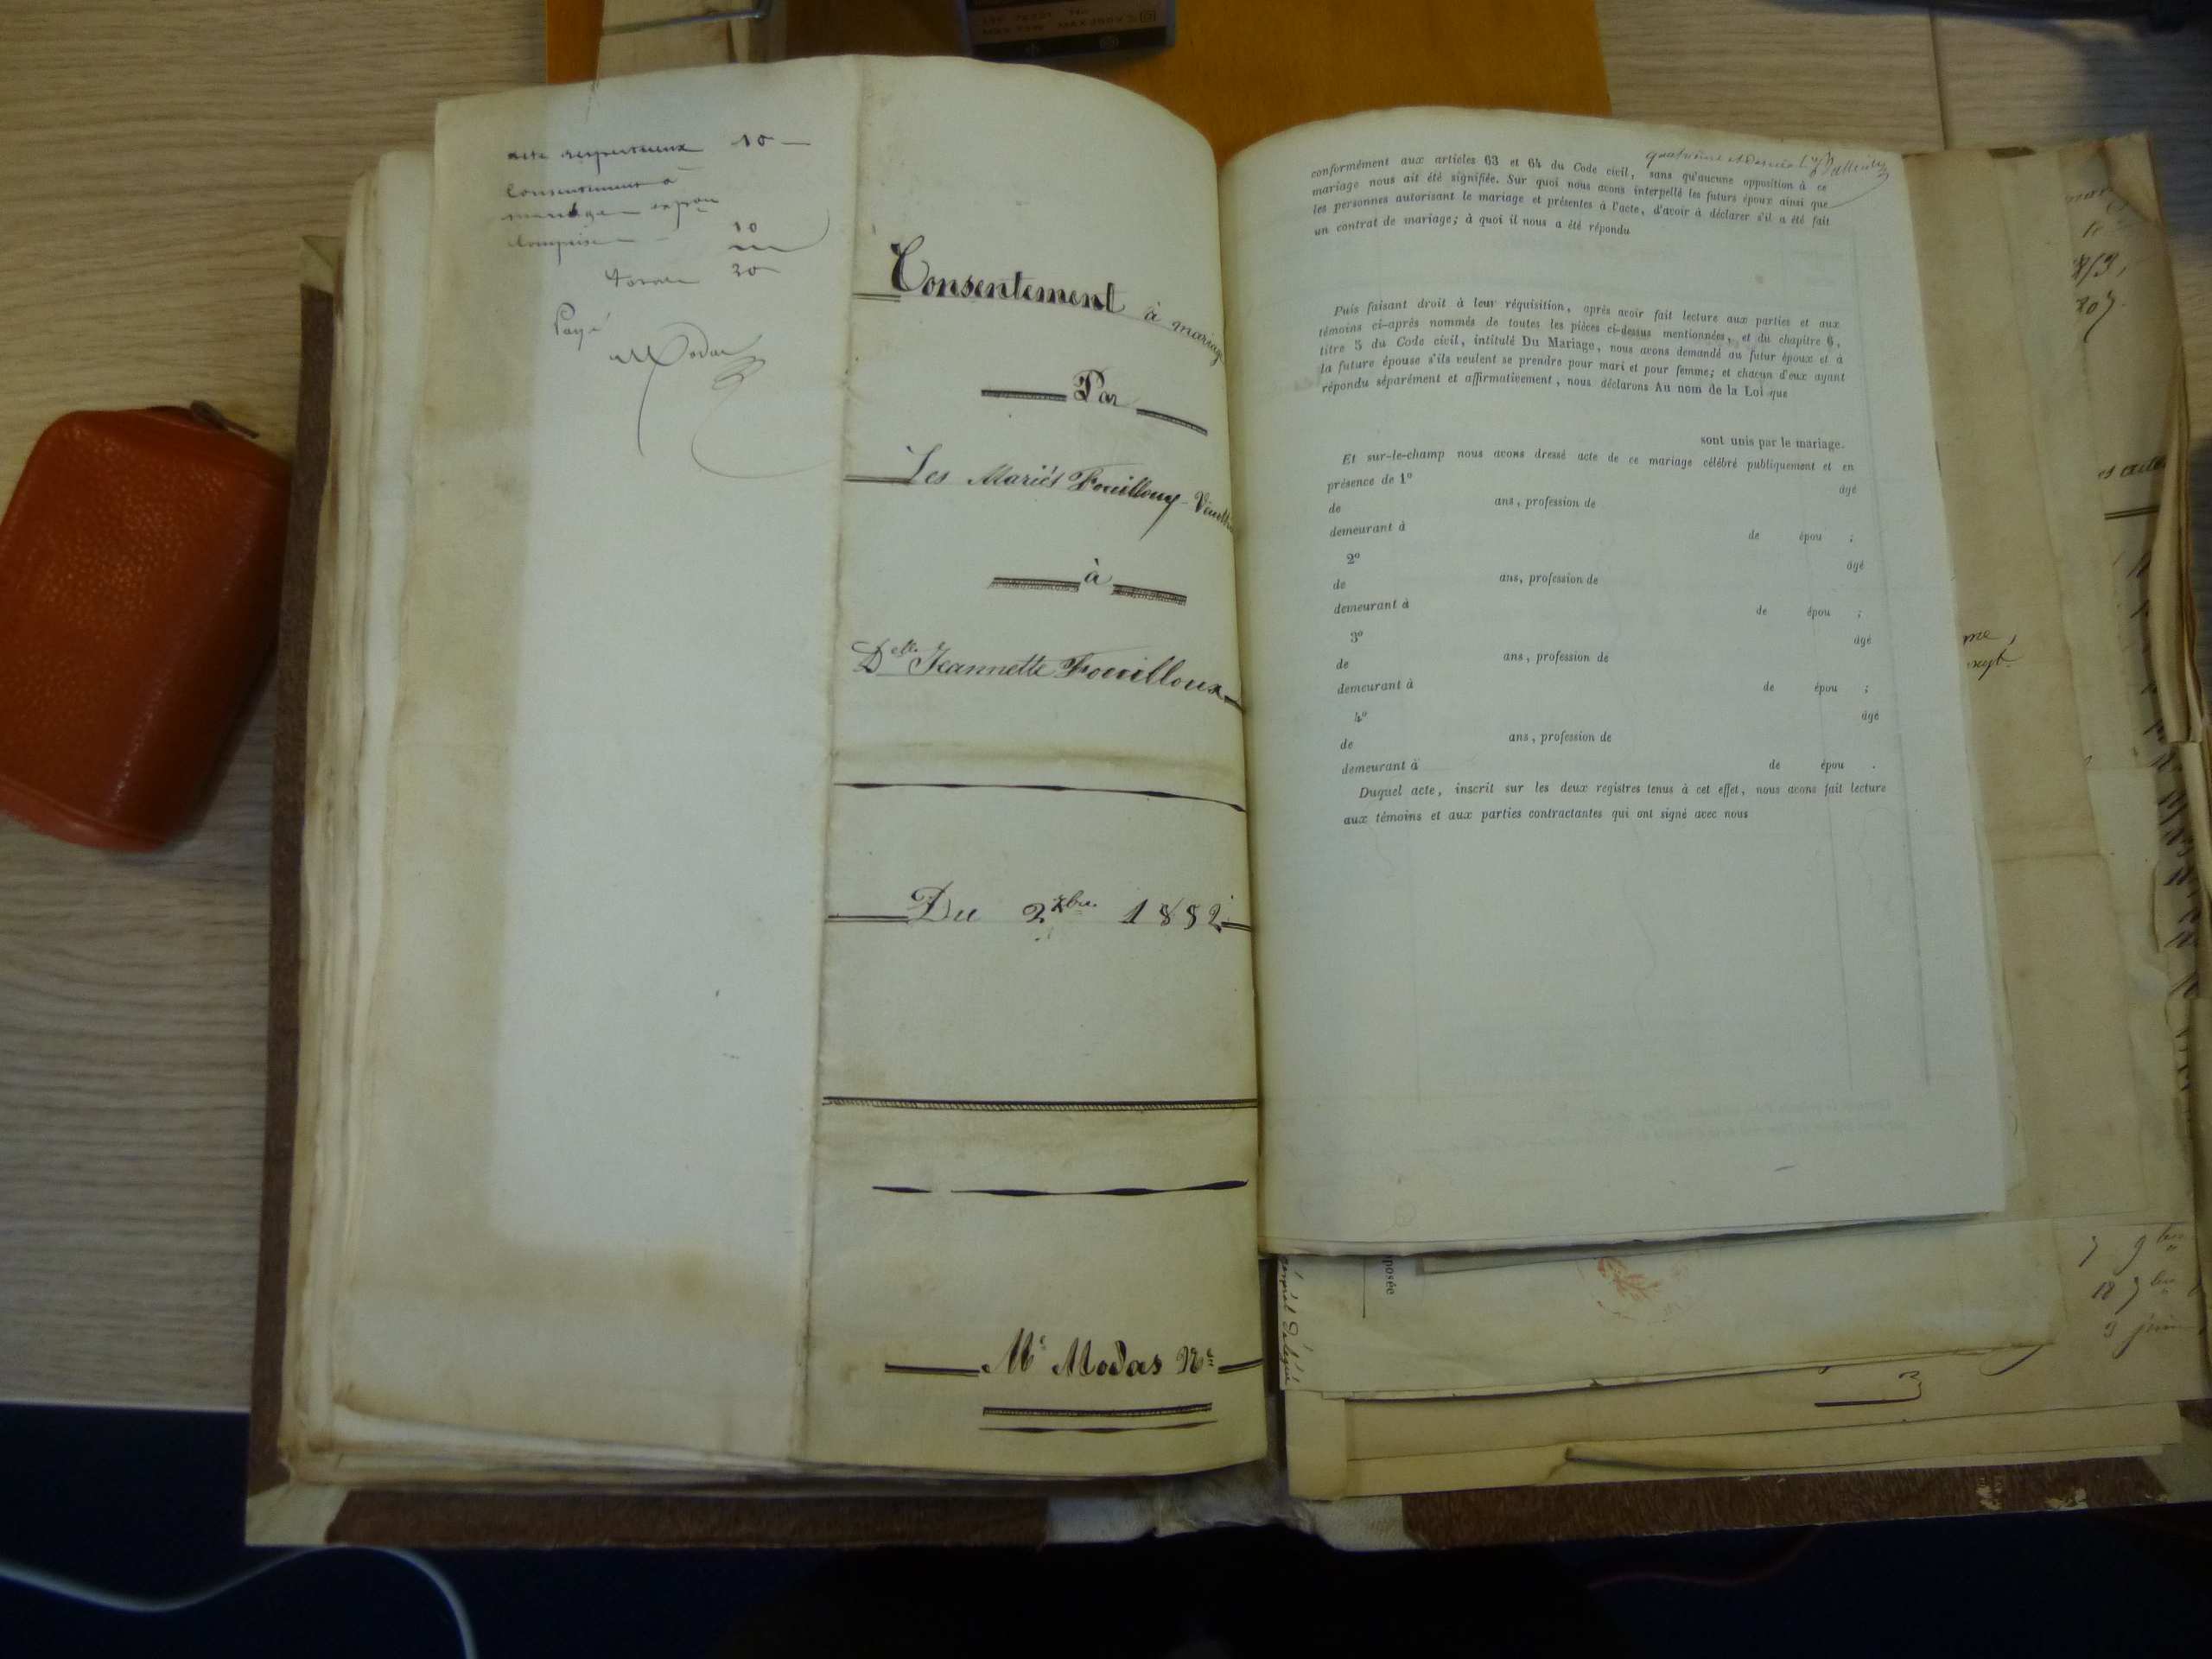 acte respectueux 10
Consentement à
mariage expon
Comprise 10
30
Payé
Modas
Consentement à mariag
Par
Les Mariés Fouilloux -
à
Delle Jeannette Fouilloux
Du 2 Xbre 1882
Me Modas Nre
conformément aux articles 63 et 64 du Code civil, sans qu'aucune opposition à ce
mariage nous ait été signifiée. Sur quoi nous avons interpellé les futurs époux ainsi que
les personnes autorisant le mariage et présentes à l'acte, d'avoir à déclarer s'il a été fait
un contrat de mariage; à quoi il nous a été répondu
Puis faisant droit à leur réquisition, après avoir fait lecture aux parties et aux
témoins ci-après nommés de toutes les pièces ci-dessus mentionnées, et du chapitre 6,
titre 5 du Code civil, intitulé Du Mariage, nous avons demandé au futur époux et à
la future épouse s'ils veulent se prendre pour mari et pour femme; et chacun d'eux ayant
répondu séparément et affirmativement, nous déclarons Au nom de la Loi que
sont unis par le mariage.
Et sur-le-champ nous avons dressé acte de ce mariage célébré publiquement et en
présence de 1° âgé
de ans, profession de
demeurant à de épou ;
2° âgé
de ans, profession de
demeurant à de épou ;
3° âgé
de ans, profession de
demeurant à de épou ;
4° âgé
de ans, profession de
demeurant à de épou .
Duquel acte, inscrit sur les deux registres tenus à cet effet, nous avons fait lecture
aux témoins et aux parties contractantes qui ont signé avec nous
posée